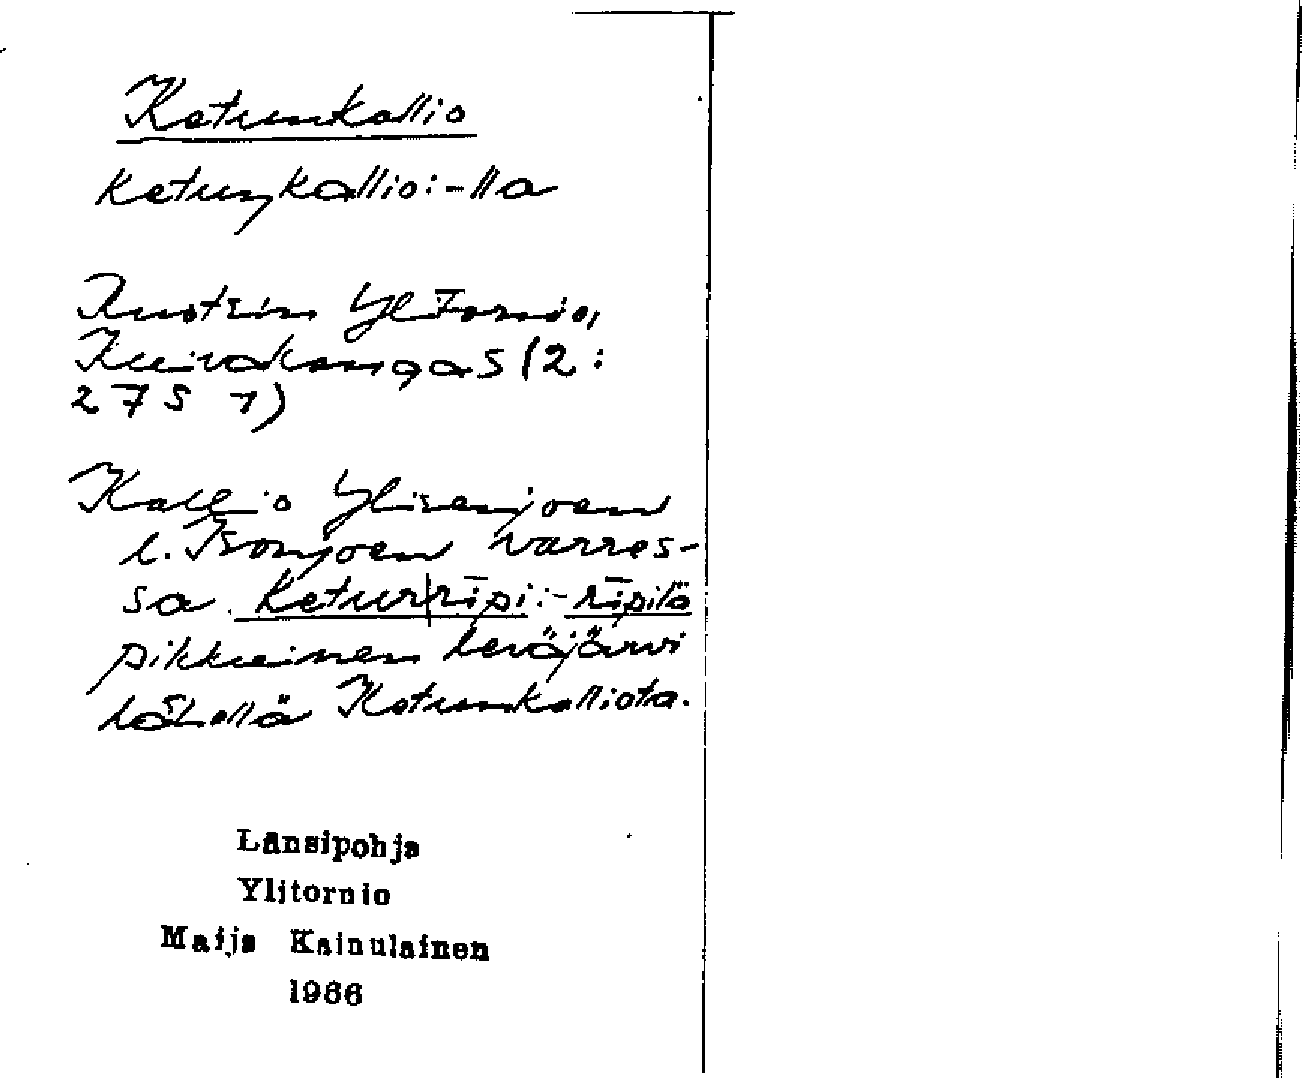 Ketunkallio
ketuŋkallio:-lla
Ruotsin Ylitornio,
Kuivakangas (2:
275 1)
Kallio Ylisenjoen
l. Isonjoen varres-
sa. Keturrīpi:-rīpilä
pikkuinen leväjärvi
lähellä Ketunkalliota.
Länsipohja
Ylitornio
Maija Kainulainen
1966